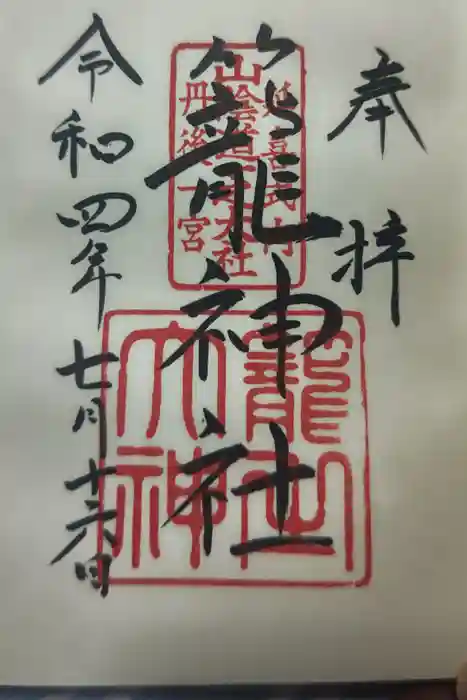 奉拝
延喜式内
山陰道
大社
丹後一宮
籠神社
籠之
大神
令和四年七月十六日